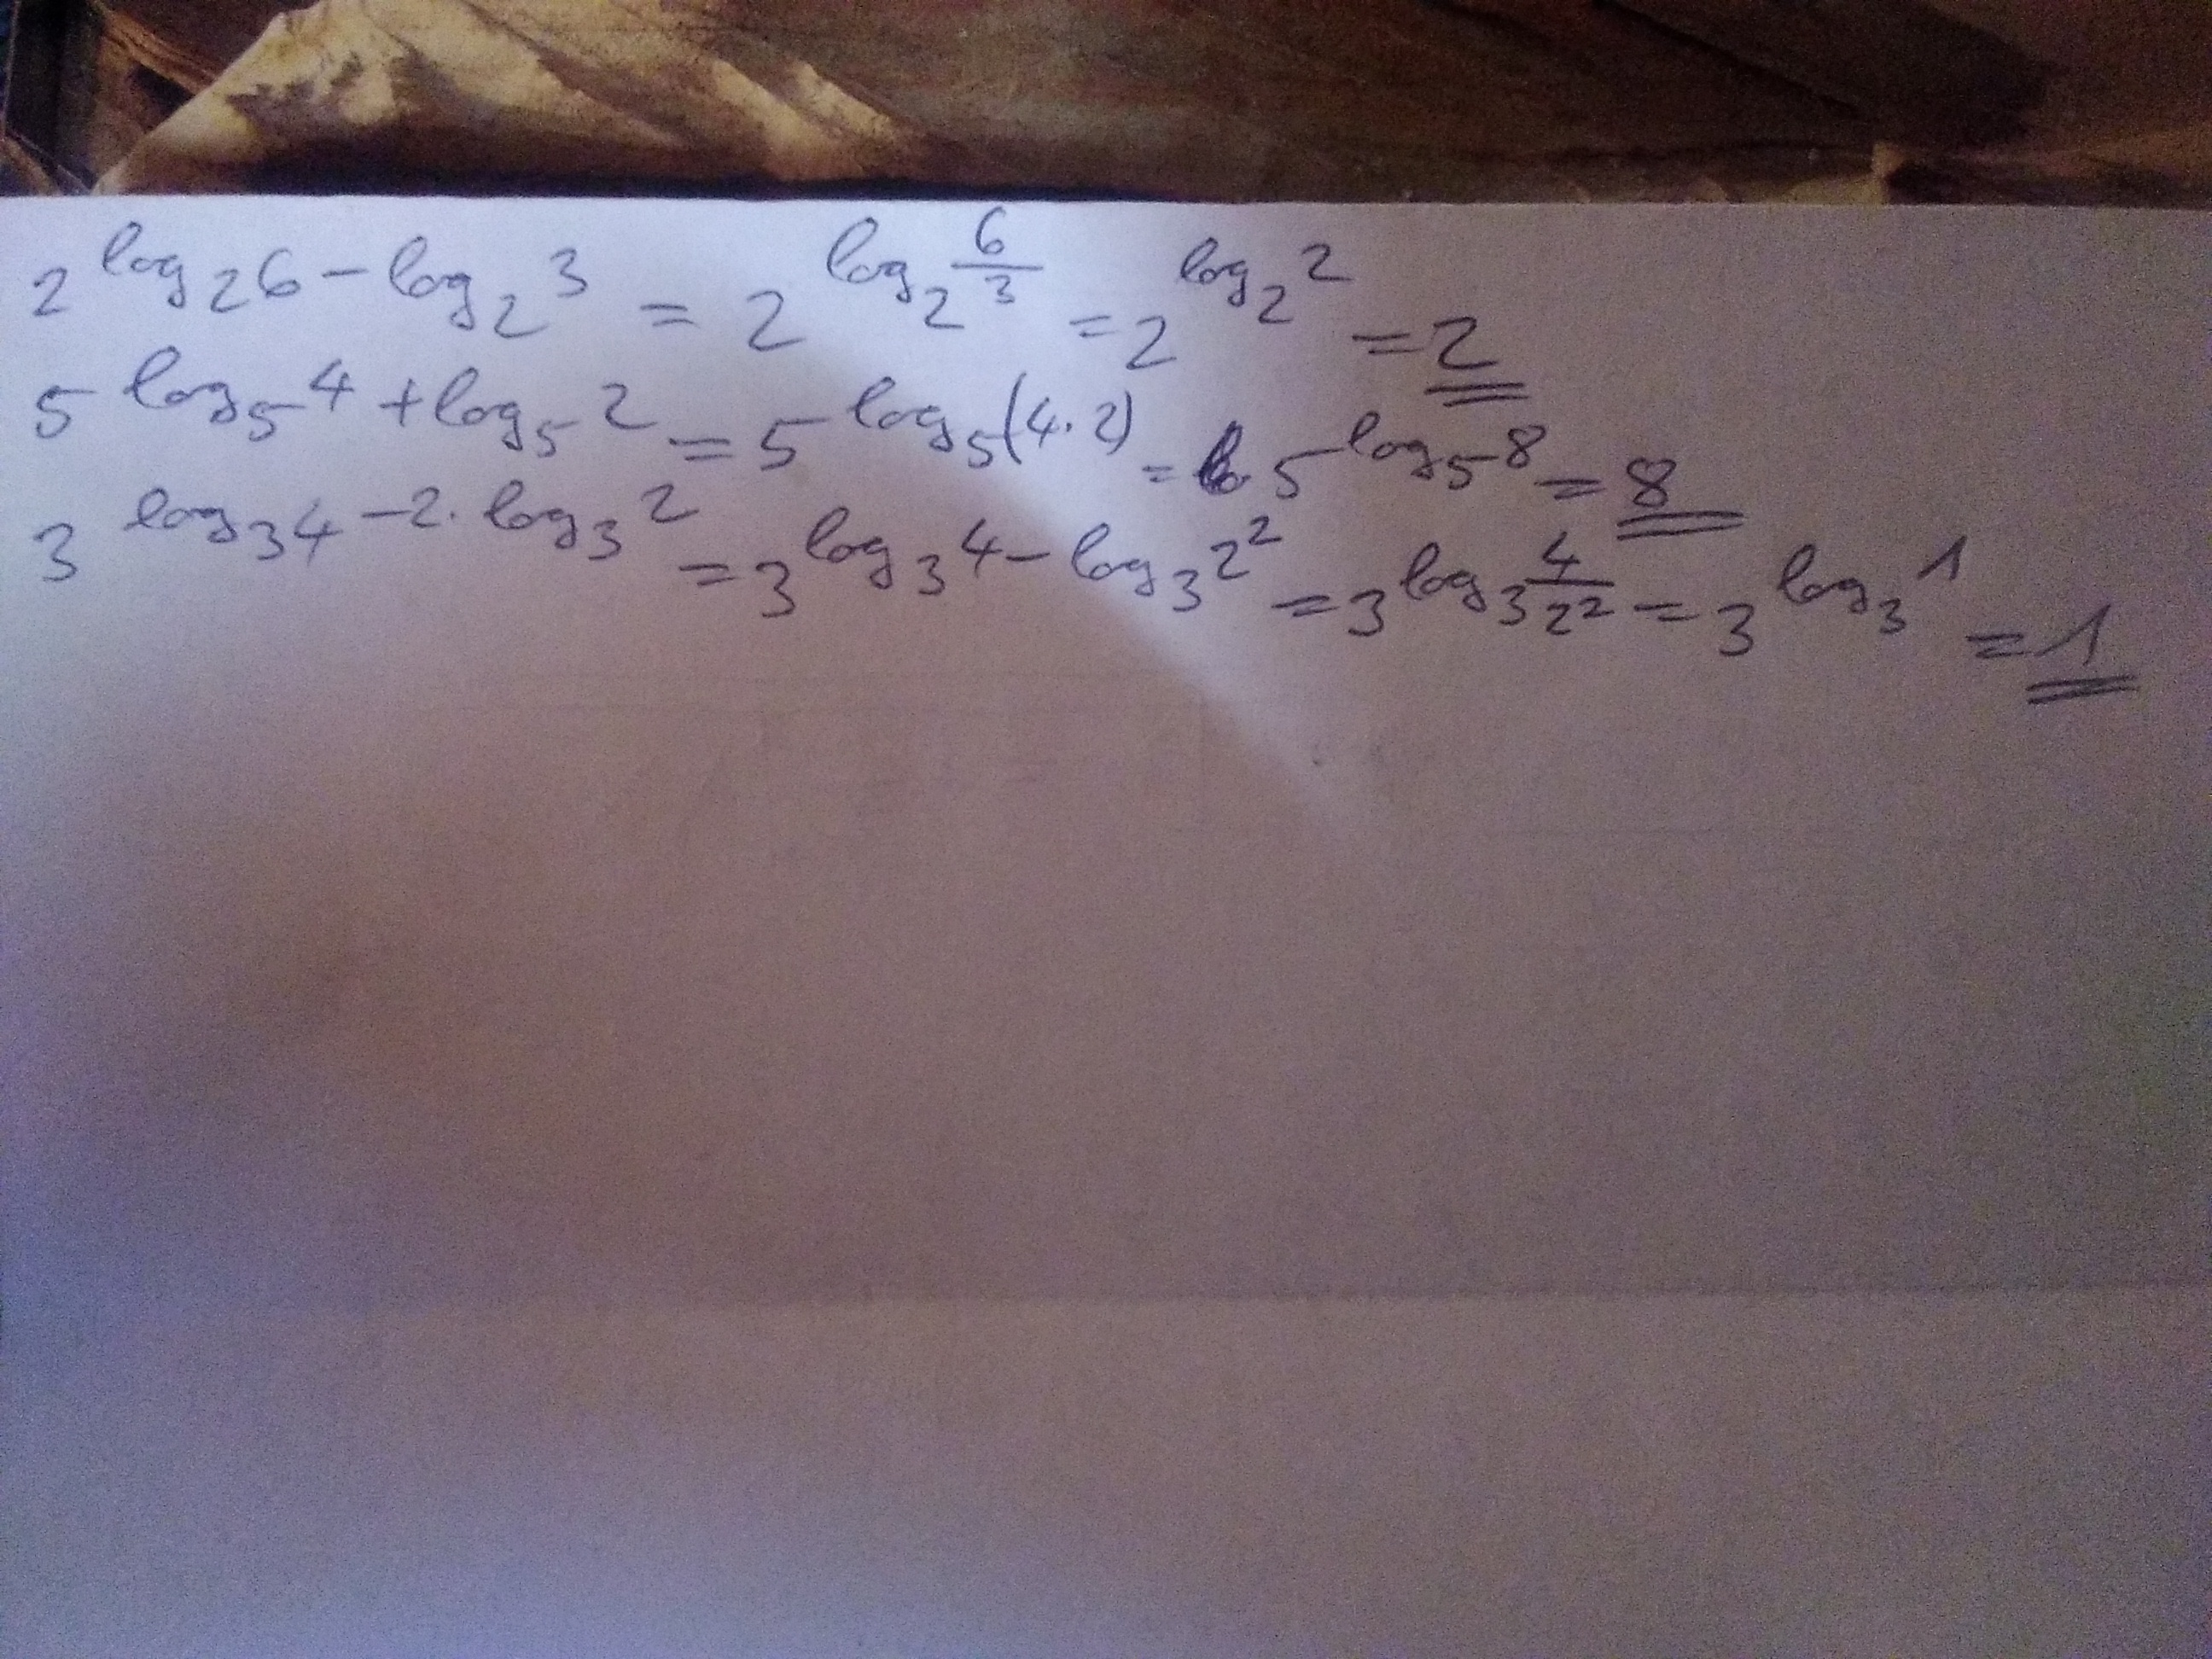 2^{log_2 6 - log_2 3} = 2^{log_2 \frac{6}{3}} = 2^{log_2 2} = 2
5^{log_5 4 + log_5 2} = 5^{log_5 (4 · 2)} = 5^{log_5 8} = 8
3^{log_3 4 - 2 · log_3 2} = 3^{log_3 4 - log_3 2^2} = 3^{log_3 \frac{4}{2^2}} = 3^{log_3 1} = 1